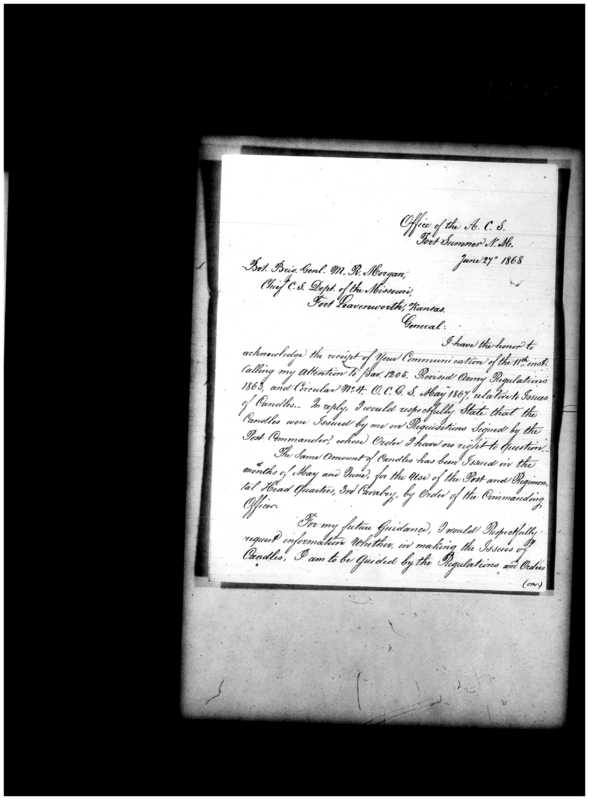 Office of the A. C. S.
Fort Sumner N. M.
June 27" 1868
Bvt. Brig. Genl. M. R. Morgan,
Chief C. S. Dept. of the Missouri,
Fort Leavenworth, Kansas.
General:
I have the honor to
acknowledge the receipt of your Communication of the 11th inst.
calling my Attention to par 1205. Revised Army Regulations
1863, and Circular No. 4. O. C. G. S. May 1867, relative to Issues
of Candles.. In reply, I would respectfully State that the
Candles were Issued by me on Requisitions Signed by the
Post Commander, whose Order I have no right to question.
The Same Amount of Candles has been Issued in the
months of May and June, for the Use of the Post and Regimen
tal Head Quarters, 3rd Cavalry, by Order of the Commanding
Officer.
For my future Guidance, I would Respectfully
request information Whether, in making the Issues of
Candles, I am to be Guided by the Regulations and Orders
(over)